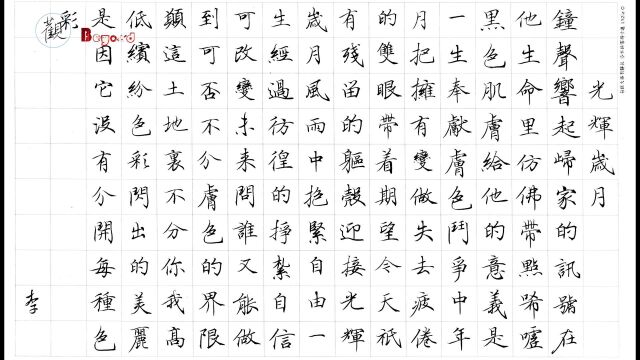 光輝歲月
鐘聲響起歸家的訊號在
他生命里仿佛帶點唏噓
黑色肌膚給他的意義是
一生奉獻膚色鬥爭中年
月把擁有變做失去疲倦
的雙眼帶着期望今天衹
有殘留的軀殼迎接光輝
歲月風雨中抱緊自由一
生經過彷徨的掙紮自信
可改變未来問誰又能做
到可否不分膚色的界限
願這土地裏不分你我高
低繽紛色彩閃出的美麗
是因它沒有分開每種色
彩
觀
李